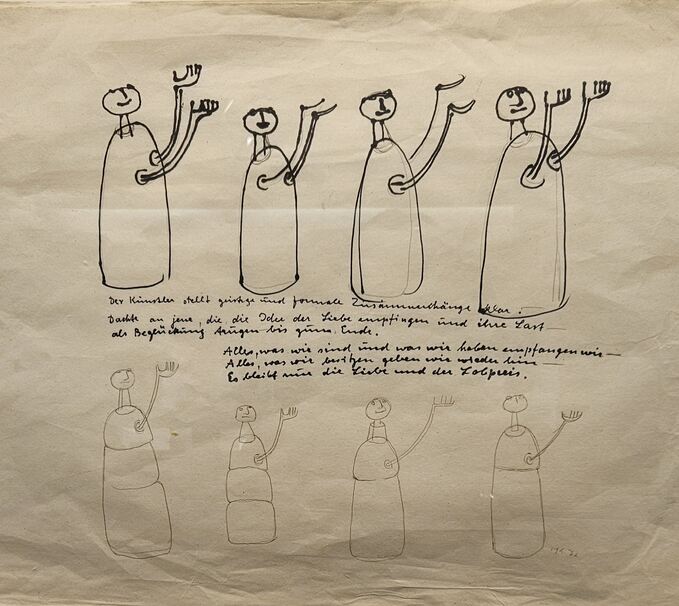 Der Künstler stellt geistige und formale Zusammenhänge klar.
Dachte an jene, die die Idee der Liebe empfingen und ihre Last
als Beglückung trugen bis zum Ende.
Alles, was wir sind und was wir haben empfangen wir—
Alles, was wir besitzen geben wir wieder hin—
Es bleibt nur die Liebe und der Lobpreis.